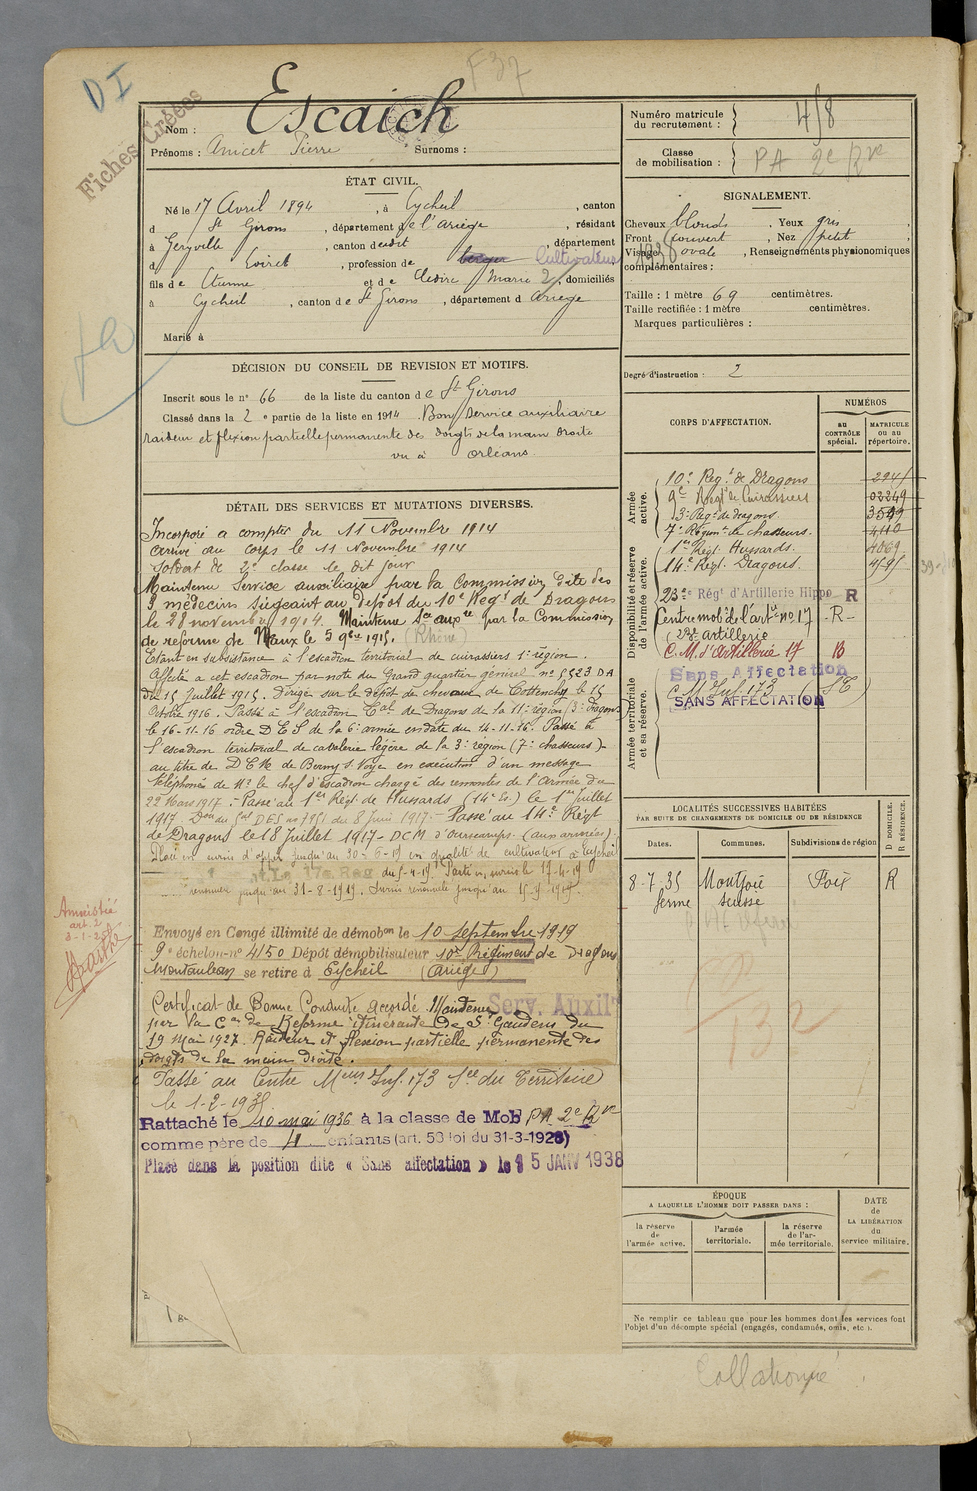 D I
F 37
Fiches Créées
Nom : Escaich
Prénoms : Anicet Pierre Surnoms :
ÉTAT CIVIL.
Né le 17 Avril 1894, à Eycheil, canton
d St Girons, département de l'Ariège, résidant
à Geryville, canton dudit, département
d Loiret, profession de berger Cultivateur
fils de Etienne et de Claire Marie, domiciliés
à Eycheil, canton de St Girons, département d Ariège
Marié à
DÉCISION DU CONSEIL DE REVISION ET MOTIFS.
Inscrit sous le n° 66 de la liste du canton de St Girons
Classé dans la 2e partie de la liste en 1914. Bon service auxiliaire
raideur et flexion partielle permanente des doigts de la main droite
vu à Orléans
DÉTAIL DES SERVICES ET MUTATIONS DIVERSES.
Incorporé a compter du 11 Novembre 1914
arrivé au corps le 11 Novembre 1914
Soldat de 2e classe le dit jour
Maintenu Service auxiliaire par la Commission dite des
3 médecins siégeant au dépôt du 10e Regt de Dragons
le 28 novembre 1914. Maintenu Sce auxre par la Commission
de reforme de Meaux le 5 9bre 1915. (Rhône)
Etant en subsistance à l'escadron territorial de cuirassiers 1e région.
Affecté a cet escadron par note du Grand quartier général n° 5523 DA
du 15 Juillet 1915. Dirigé sur le dépôt de chevaux de Cottenchy le 15
Octobre 1916. Passé à l'escadron Tal de Dragons de la 11e région (3e dragons)
le 16-11-16 ordre D E S de la 6e armée en date du 14-11-16. Passé à
l'escadron territorial de cavalerie légère de la 3e région (7e chasseurs)
au titre de D E M de Berny s. Noye en exécution d'un message
téléphoné de Mr le chef d'escadron chargé des remontes de l'Armée du
22 Mars 1917. Passé au 1er Régt de Hussards (14e Es.) le 1er Juillet
1917. Don du Gal DES no 7951 du 8 Juin 1917. Passé au 14e Régt
de Dragons le 18 Juillet 1917 - DCM d'Ourscamps. (aux armées).
Placé en sursis d'appel jusqu'au 30-6-19 en qualité de cultivateur à Eycheil
du 5-4-19. Parti en sursis le 19-4-19
renouvelé jusqu'au 31-8-1919. Sursis renouvelé jusqu'au 15-9-1919
Amnistié
art. 2
3-1-25
Envoyé en Congé illimité de démobon le 10 Septembre 1919
9e échelon n° 4150 Dépôt démobilisateur 10e Régiment de Dragons
Montauban se retire à Eycheil (Ariège)
Certificat de Bonne Conduite accordé. Maintenu Serv. Auxilre
par la Con de Réforme itinérante de St Gaudens du
19 Mai 1927. Raideur et flexion partielle permanente des
doigts de la main droite.
Passé au Centre Mem Inf. 173 Sce du Territoire
le 1-2-1935
Rattaché le 10 mai 1936 à la classe de Mob PA 2e Rve
comme père de 4 enfants (art. 58 loi du 31-3-1928)
Placé dans la position dite « Sans affectation » le 15 JANV 1938
Numéro matricule
du recrutement : 418
Classe
de mobilisation : PA 2e Rve
1928
SIGNALEMENT.
Cheveux blonds, Yeux gris,
Front couvert, Nez petit,
Visage ovale, Renseignements physionomiques
complémentaires :
Taille : 1 mètre 69 centimètres.
Taille rectifiée : 1 mètre centimètres.
Marques particulières :
Degré d'instruction : 2
CORPS D'AFFECTATION.
NUMÉROS
au CONTRÔLE spécial.
MATRICULE ou au répertoire.
Armée active.
Disponibilité et réserve de l'armée active.
Armée territoriale et sa réserve.
10e Regt de Dragons 2941
9e Régt de Cuirassiers 03249
3e Regt de dragons. 3549
7e Régimt de chasseurs. 4110
1er Régt Hussards. 4069
14e Régt Dragons.
23e Régt d'Artillerie Hippo R
Centre mobr de l'artie no 17 - R -
(23e artillerie)
C. M. d'Artillerie 17 B
Sans Affectation
C M Inf. 173 (ST)
SANS AFFECTATION
LOCALITÉS SUCCESSIVES HABITÉES
PAR SUITE DE CHANGEMENTS DE DOMICILE OU DE RÉSIDENCE
D DOMICILE.
R RÉSIDENCE.
Dates. Communes. Subdivisions de région
8-7-35 Montjoie Foix R
ferme Seusse
ÉPOQUE
A LAQUELLE L'HOMME DOIT PASSER DANS :
DATE
de
LA LIBÉRATION
du
service militaire.
la réserve
de
l'armée active.
l'armée
territoriale.
la réserve
de l'ar-
mée territoriale.
Ne remplir ce tableau que pour les hommes dont les services font
l'objet d'un décompte spécial (engagés, condamnés, omis, etc.).
Collationné